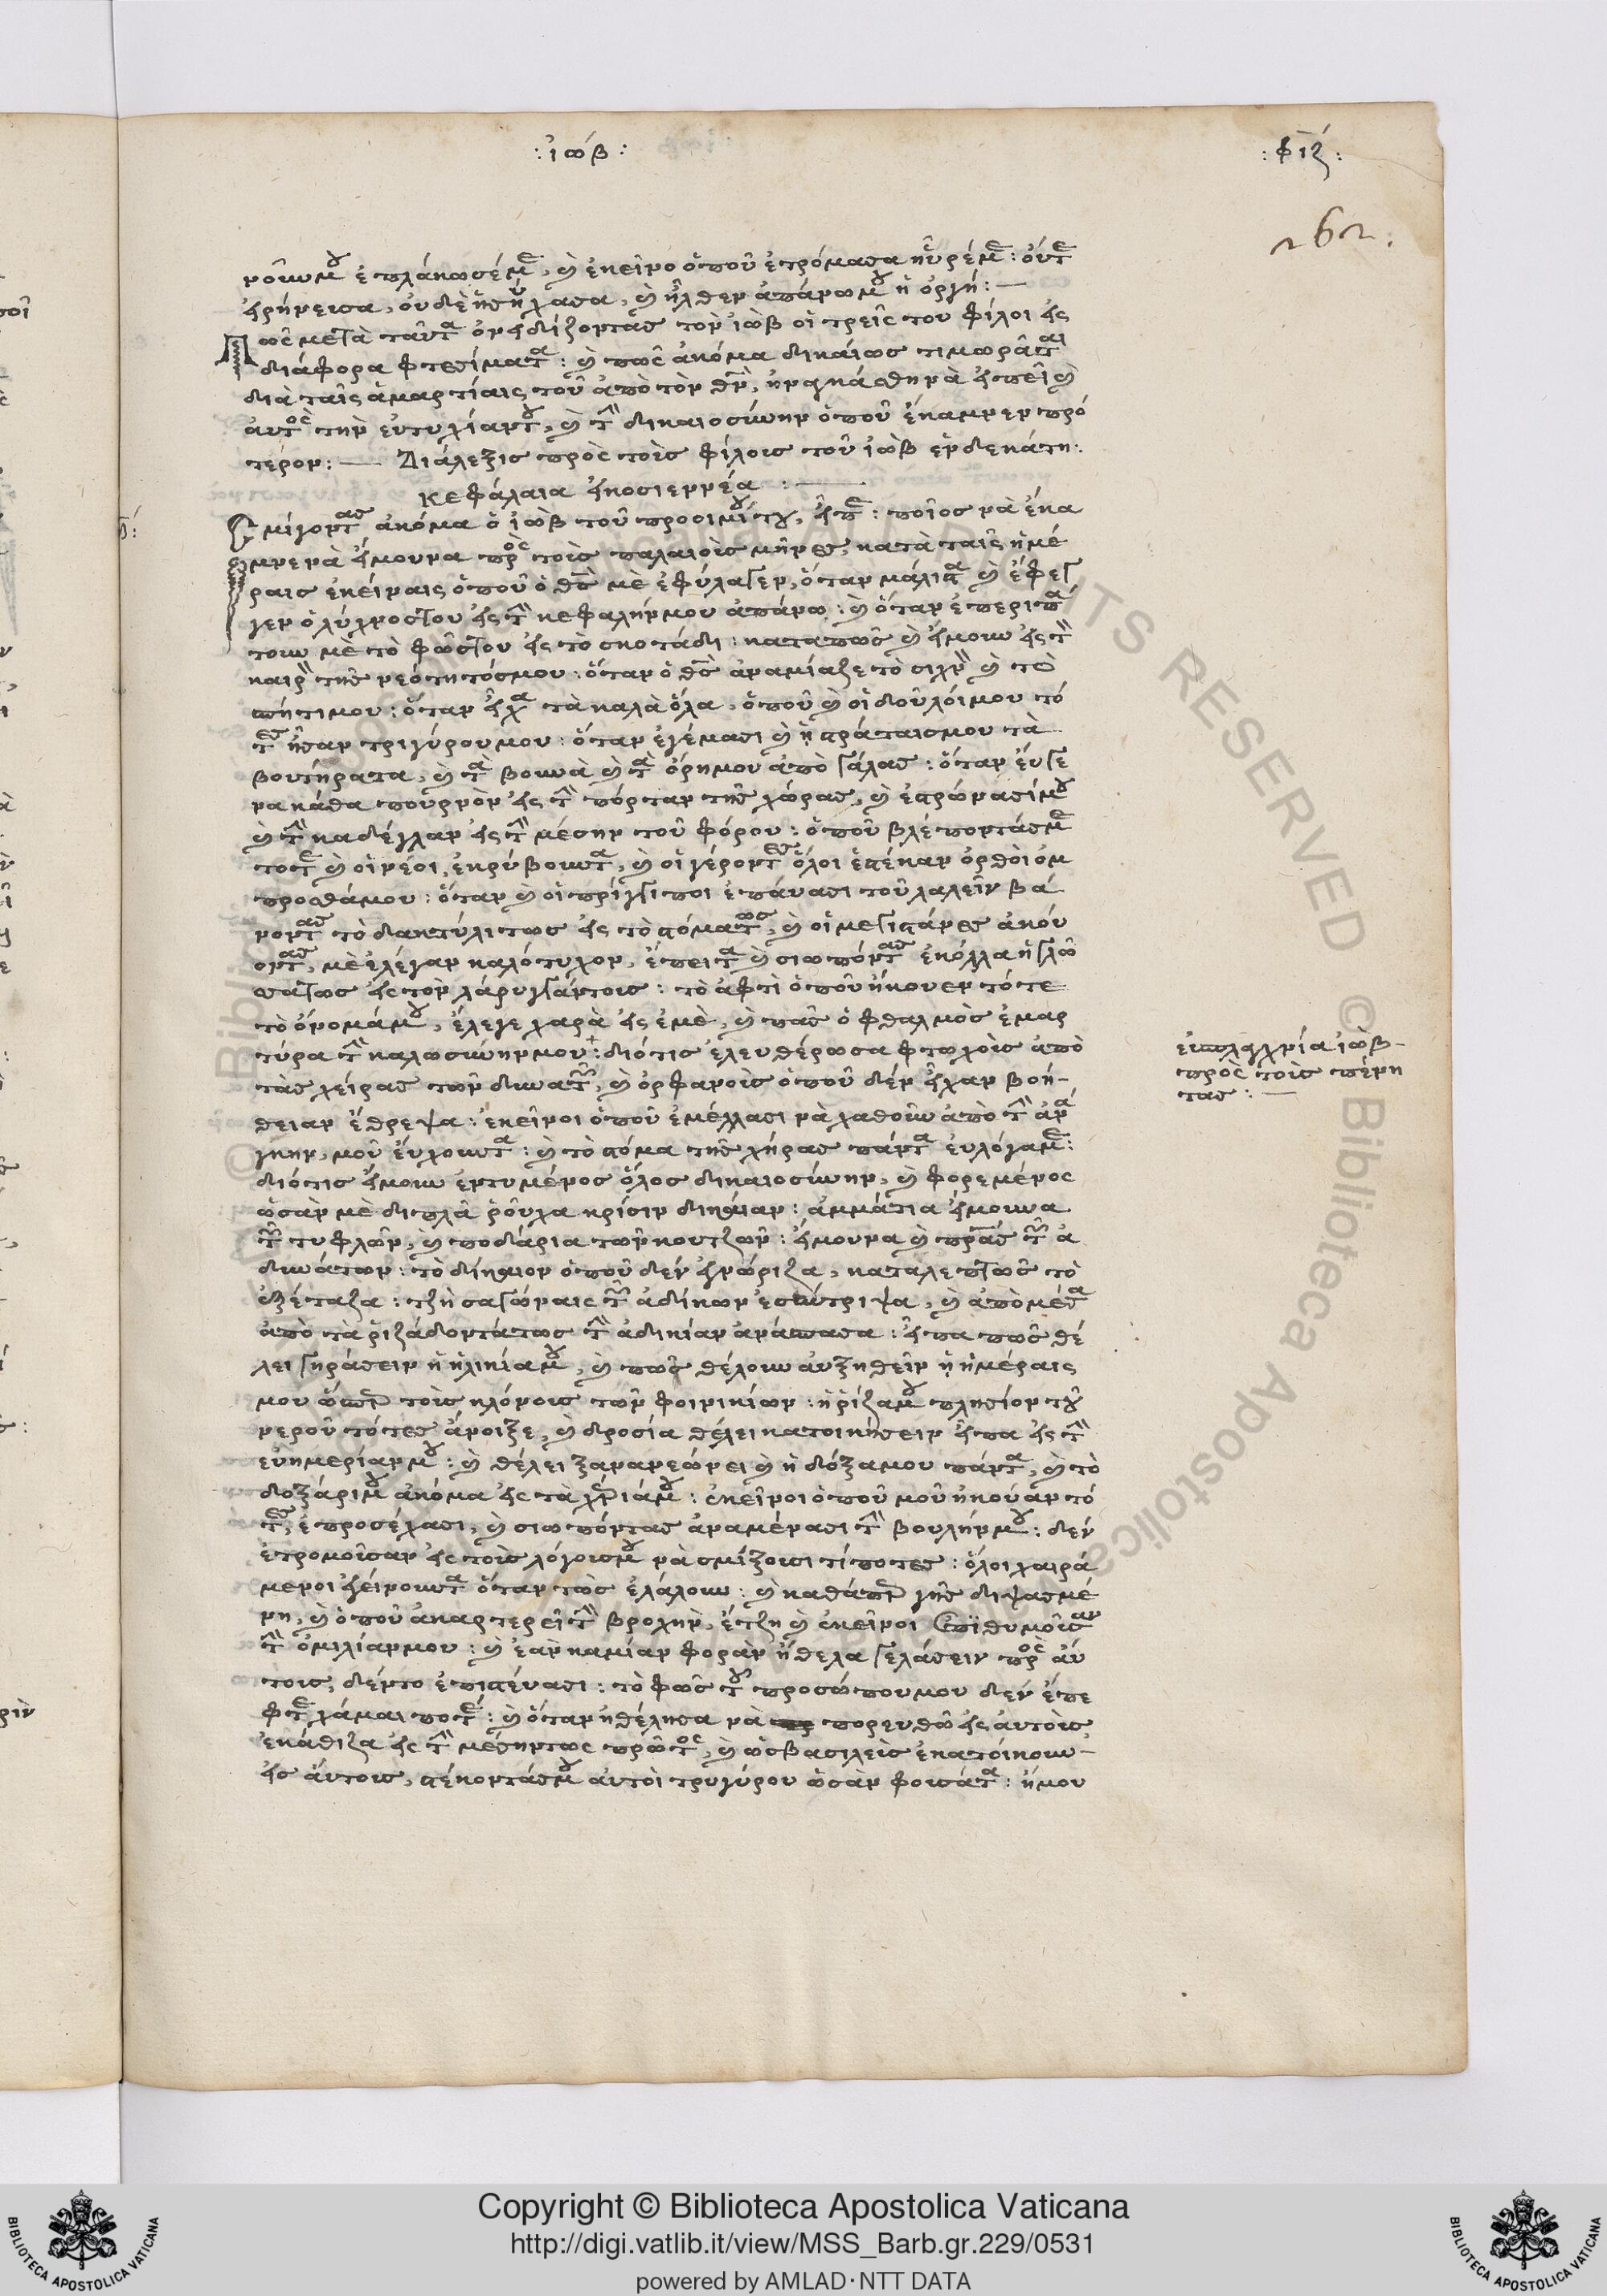 :ἰώβ:
:φιζ:
262.
νοῦμου ἐπλάκωσέμε, καὶ ἐκεῖνο ὁποῦ ἐτρόμασα ηὗρέμε: οὔτε
εἰρήνευσα, οὐδὲ ἡσύχασα, καὶ ἦλθεν ἀπάνωμου ἡ ὀργή: —
Πῶς μετὰ ταῦτα ὀνειδίζοντας τὸν ἰὼβ οἱ τρεῖς του φίλοι εἰς
διάφορα φτεσίματα: καὶ πῶς ἀκόμα δικαίως τιμωρᾶται
διὰ ταῖς ἁμαρτίαις τοῦ ἀπὸ τὸν θεὸν, ἠναγκάσθη νὰ εἰπεῖ καὶ
αὐτὸς τὴν εὐτυχίαντου, καὶ τὴν δικαιοσύνην ὁποῦ ἔκαμνεν πρό
τερον: — Διάλεξις πρὸς τοὺς φίλους τοῦ ἰὼβ ἑνδεκάτη:
Κεφάλαια εἰκοσιεννέα : —
Σμίγοντας ἀκόμα ὁ ἰὼβ τοῦ προοιμίου του, εἶπε: ποῖος νὰ ἔκα
μνε νὰ ἤμουνα πρὸς τοὺς παλαιοὺς μῆνες, κατὰ ταῖς ἡμέ
ραις ἐκείναις ὁποῦ ὁ θεὸς μὲ ἐφύλαγεν, ὅταν μάλιστα καὶ ἔφεγ
γεν ὁ λύχνοςτου εἰς τὴν κεφαλήνμου ἀπάνω: καὶ ὅταν ἐπεριπά
τουν μὲ τὸ φῶςτου εἰς τὸ σκοτάδι: καταπῶς καὶ ἤμουν εἰς τὸν
καιρὸν τῆς νεότητόςμου: ὅταν ὁ θεὸς ἀναμίαζε τὸ σιχνὸν καὶ τὸ
σπήτιμου: ὅταν εἶχα τὰ καλὰ ὅλα, ὁποῦ καὶ οἱ δοῦλοίμου τό
τες ἦσαν τριγύρουμου: ὅταν ἐγέμασι καὶ ἡ στράταισμου τὰ
βουτήρατα, καὶ τὰ βουνὰ καὶ τὰ ὄρημου ἀπὸ γάλας: ὅταν ἔυγε
να κάθα πουρνὸν εἰς τὴν πόρταν τῆς χώρας, καὶ ἐστρώνασίμου
καὶ τὴν καδέγλαν εἰς τὴν μέσην τοῦ φόρου: ὁποῦ βλέποντάςμε
τότε καὶ οἱ νέοι, ἐκρύβουντα, καὶ οἱ γέροντες ὅλοι ἐστέκαν ὀρθοὶ ὀμ
προσθάμου: ὅταν καὶ οἱ πρίγκιποι ἐπάυασι τοῦ λαλεῖν βά
νοντας τὸ δακτύλιτως εἰς τὸ στόματως, καὶ οἱ μεγιστάνες ἀκού
οντας, μὲ ἐλέγαν καλότυχον, ἔπειτα καὶ σιωπόντας ἐκόλλα ἡ γλῶ
σάτως εἰς τὸν λάρυγγάντους: τὸ ἀφτὶ ὁποῦ ἤκουεν τότε
τὸ ὄνομάμου, ἔλεγε χαρὰ εἰς ἐμὲ, καὶ πᾶς ὀφθαλμὸς ἐμαρ
τύρα τὴν καλωσύνημου: διότις ἐλευθέρωσα φτωχοὺς ἀπὸ
τὰς χείρας τῶν δυνατῶν, καὶ ὀρφανοὺς ὁποῦ δὲν εἶχαν βοή-
θειαν ἔθρεψα: ἐκεῖνοι ὁποῦ ἐμέλλασι νὰ χαθοῦν ἀπὸ τὴν ἀνά
γκην, μοῦ ἔυχουντα: καὶ τὸ στόμα τῆς χήρας πάντα ἐυλόγαμε:
διότις ἤμουν ἐντυμένος ὅλος δικαιοσύνην, καὶ φορεμένος
ὡσὰν μὲ διπλᾶ ῥοῦχα κρίσιν δικηαν: ἀμμάτια ἤμουνα
τῶν τυφλῶν, καὶ ποδάρια τῶν κουτζῶν: ἤμουνα καὶ πατέρας τῶν ἀ
δυνάτων: τὸ δίκηον ὁποῦ δὲν ἐγνώριζα, καταλεπτῶς τὸ
ἐξέταζα: τζὴ σαγώναις τῶν ἀδίκων ἐσύντριψα, καὶ ἀπὸ μέσα
ἀπὸ τὰ ῥιζάδοντάτως τὴν ἀδικίαν ἀνάσπασα: εἶπα πῶς θέ
λει γηράσειν ἡ ἡλικίαμου, καὶ πῶς θέλουν ἀυξηθεῖν ᾑ ἡμέραις
μου ὥσπερ τοὺς κλόνους τῶν φοινικίων: ἡ ῥίζαμου πλησίον τοῦ
νεροῦ τότες ἄνοιξε, καὶ δροσία θέλει κατοικήσειν εἶπα εἰς τὴν
εὐημερίανμου: καὶ θέλει ξανανεώνει καὶ ἡ δόξαμου πάντα, καὶ τὸ
δοξάριμου ἀκόμα εἰς τὰ χέριάμου: ἐκεῖνοι ὁποῦ μοῦ ἠκούαν τό
τες, ἐπροσέχασι, καὶ σιωπόντας ἀναμένασι τὴν βουλήνμου: δὲν
ἐτρομοῦσαν εἰς τοὺς λόγουςμου νὰ σμίξουσι τίποτες: ὅλοι χαιρά
μενοι ἐγείνουντα ὅταν τῶς ἐλάλουν: καὶ καθάπερ γῆς διψασμέ
νη, καὶ ὁποῦ ἀκαρτερεῖ τὴν βροχὴν, ἔτζη καὶ ἐκεῖνοι ἐπϊθυμοῦσαν
τὴν ὁμιλίανμου: καὶ ἐὰν καμίαν φορὰν ἤθελα γελάσειν πρὸς αὐ
τοὺς, δέντο ἐπιστέυασι: τὸ φῶς τοῦ προσώπουμου δὲν ἔπε
φτε χάμαι ποτέ: καὶ ὅταν ἠθέλησα νὰ πορευθῶ εἰς αὐτοὺς
ἐκάθιζα εἰς τὴν μέσηντως πρῶτος, καὶ ὡς βασιλεὺς ἐκατοίκουν
εἰς αὐτοὺς, στέκοντάςμου αὐτοὶ τρυγύρου ὡσὰν φουσάτα: ἤμου
εὐσπλαχνία ἰώβ-
πρὸς τοὺς πένη
τας: —
Copyright © Biblioteca Apostolica Vaticana
http://digi.vatlib.it/view/MSS_Barb.gr.229/0531
powered by AMLAD·NTT DATA
BIBLIOTECA APOSTOLICA VATICANA
BIBLIOTECA APOSTOLICA VATICANA